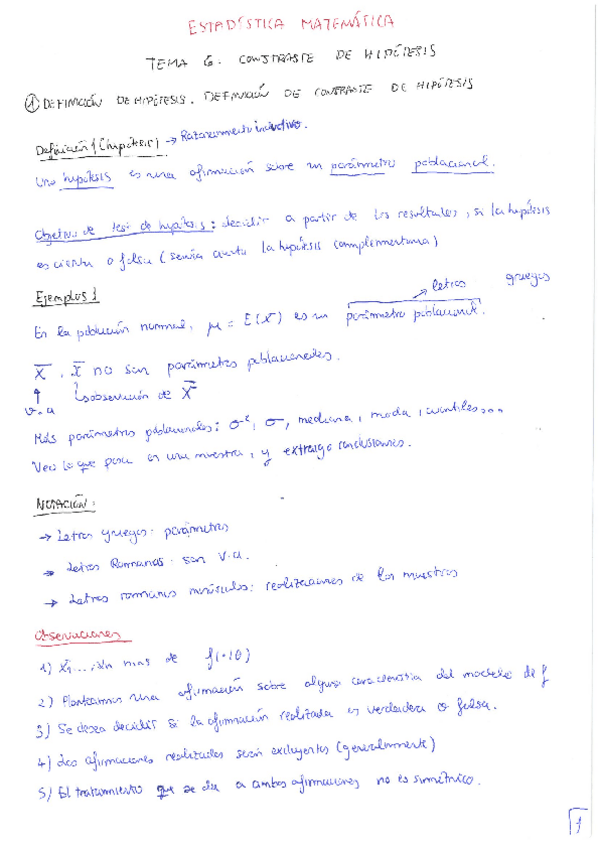 ESTADÍSTICA MATEMÁTICA
TEMA 6. CONTRASTE DE HIPÓTESIS
① DEFINICIÓN DE HIPÓTESIS. DEFINICIÓN DE CONTRASTE DE HIPÓTESIS
Definición 1 (hipótesis) → Razonamiento inductivo.
Una hipótesis es una afirmación sobre un parámetro poblacional.
Objetivo de test de hipótesis: decidir a partir de los resultados, si la hipótesis
es cierta o falsa (sería cierta la hipótesis complementaria)
Ejemplos 1
→ letras griegas
En la población normal, μ = E(X) es un parámetro poblacional.
X̄, x̄ no son parámetros poblacionales.
↑ observación de X̄
v.a
Más parámetros poblacionales: σ², σ, mediana, moda, cuantiles...
Veo lo que pasa en una muestra, y extraigo conclusiones.
NOTACIÓN:
→ Letras griegas: parámetros
→ Letras Romanas: son v.a.
→ Letras romanas minúsculas: realizaciones de las muestras
Observaciones
1) X₁...,Xn mas de f(·|θ)
2) Planteamos una afirmación sobre alguna característica del modelo de f
3) Se desea decidir si la afirmación realizada es verdadera o falsa.
4) Las afirmaciones realizadas serán excluyentes (generalmente)
5) El tratamiento que se da a ambas afirmaciones no es simétrico.
1